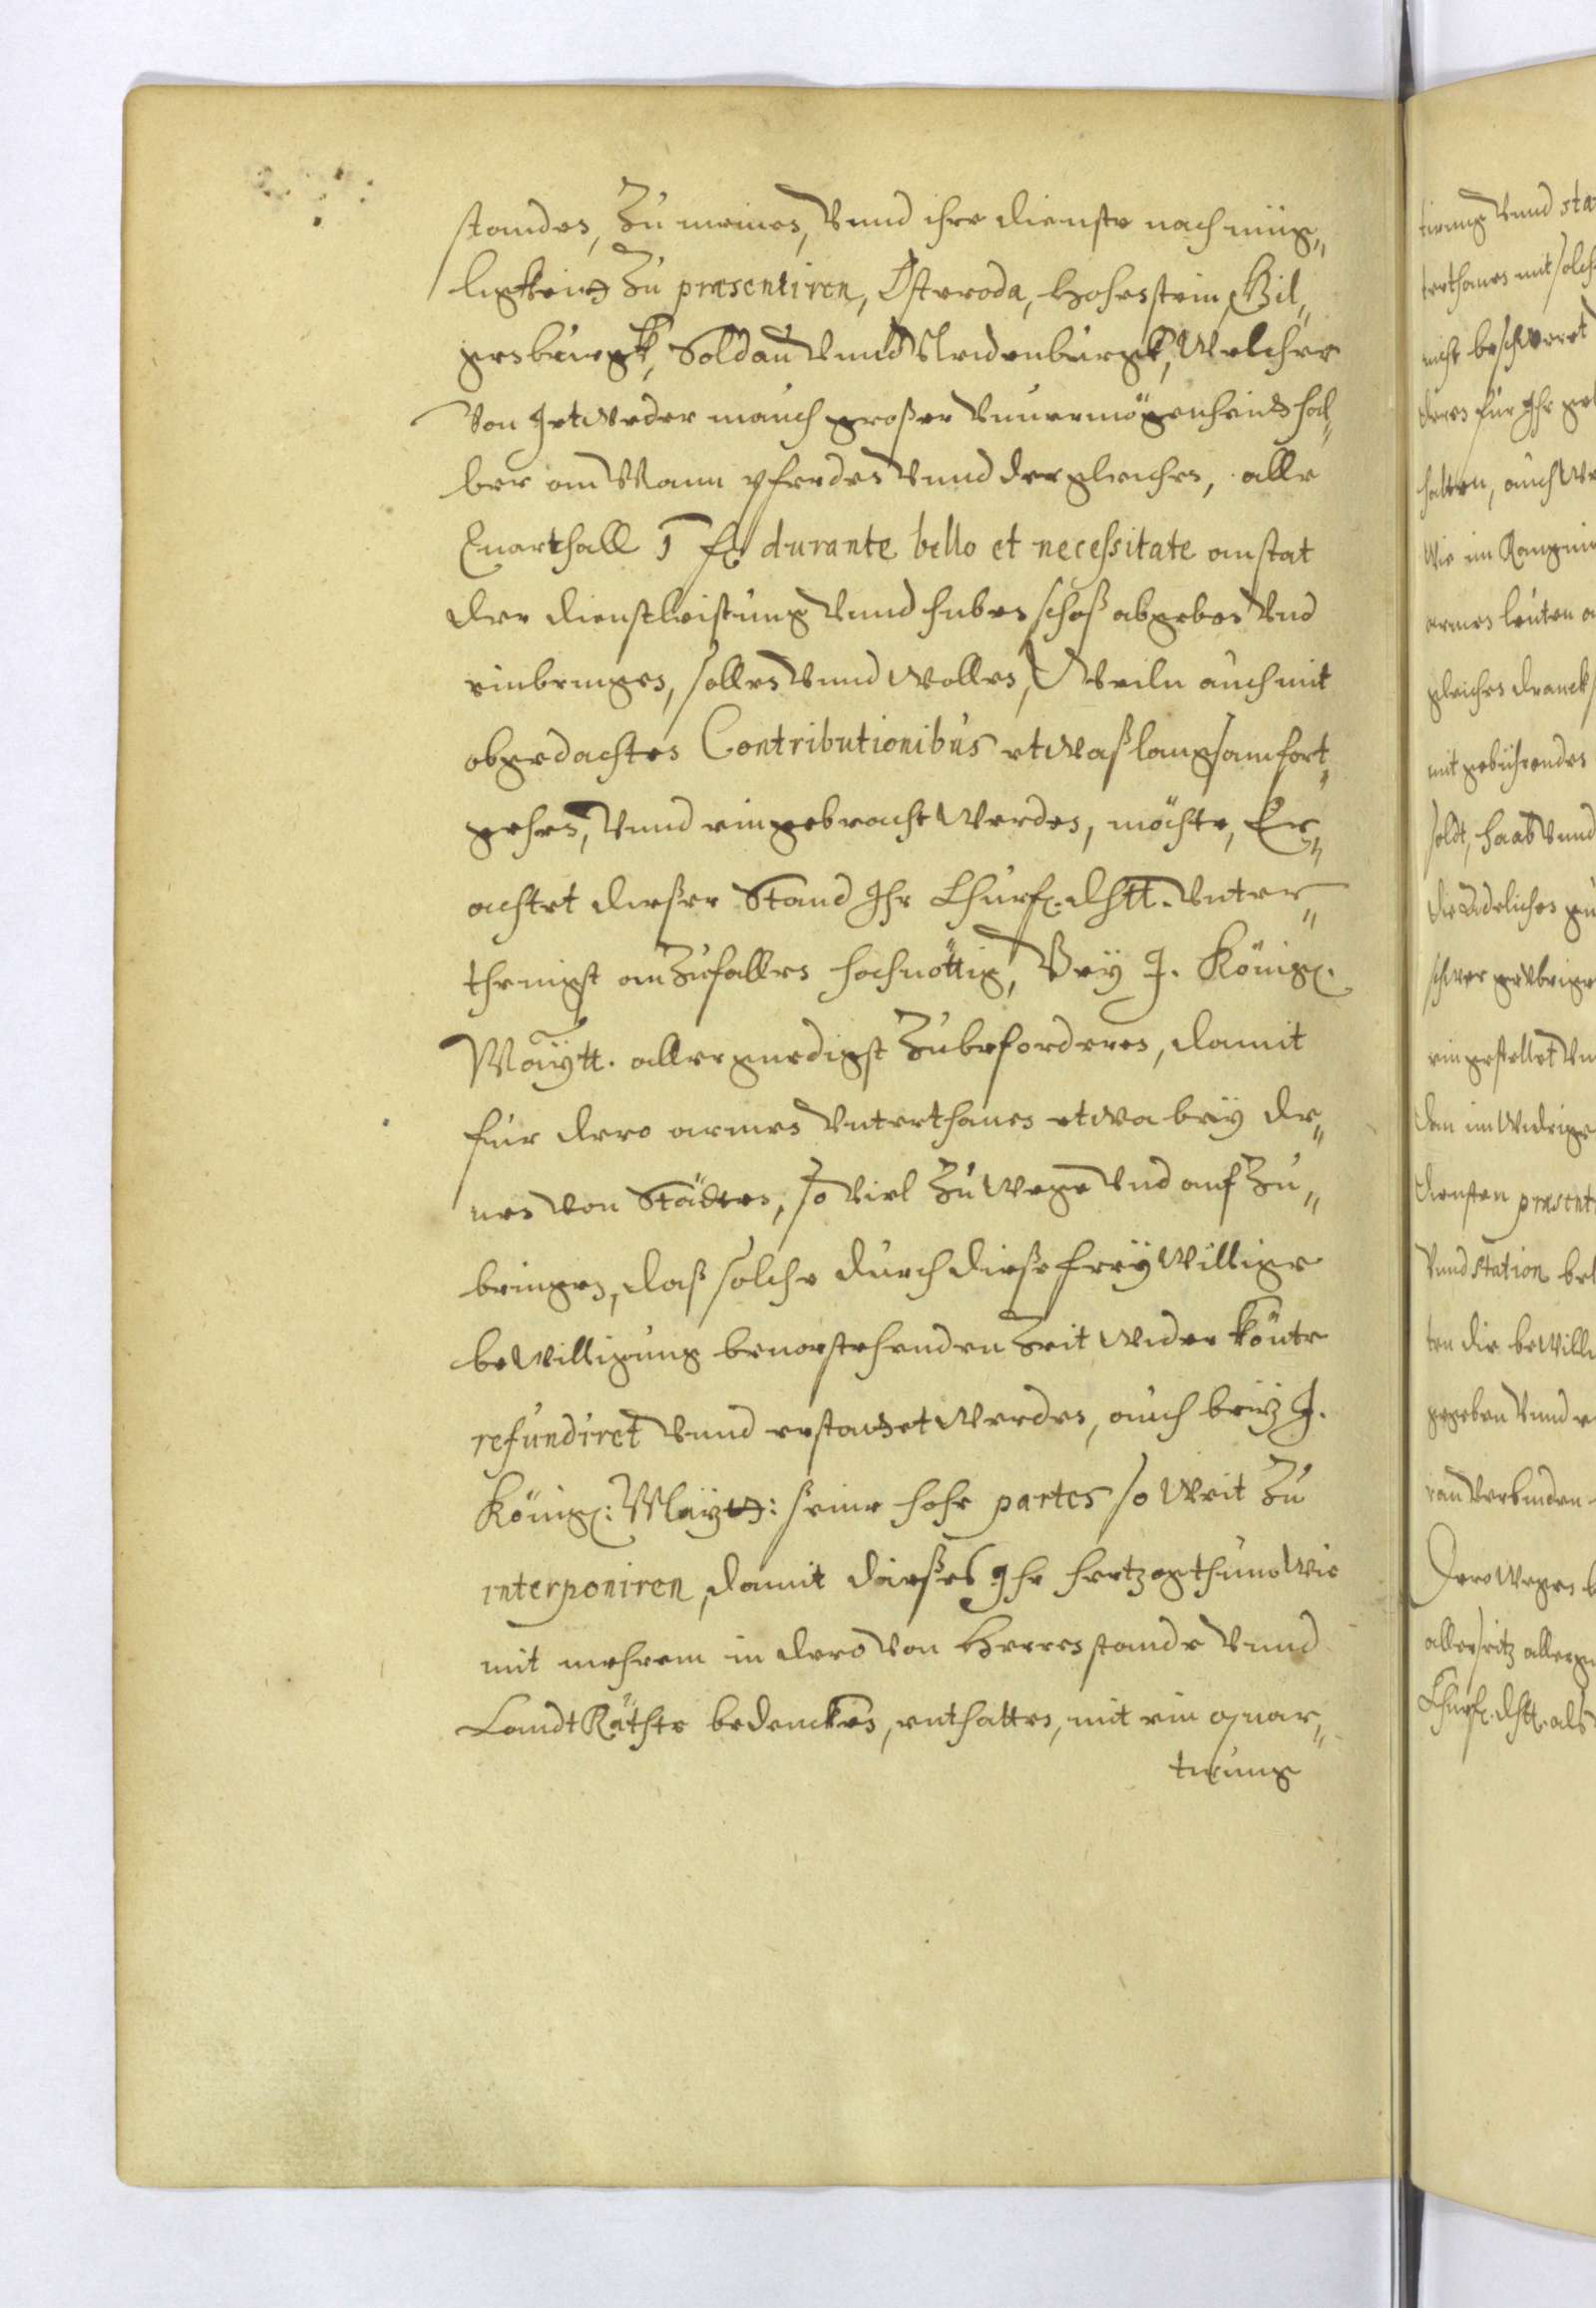 standes, Zu meines, Vnnd ihre dienste nach müg„
ligkeit Zu præsentiren, Osteroda, Hohesstein, Gil„
genburgk, Soldau Vnnd Neidenburgk, Welcher
Von Jetweder mauch großer Vnuermögenheidt hal„
ber an Mann pferden Vnnd dergleichen, alle
Quarthall 1 fl durante bello et necessitate anstat
der dienstleistung Vnnd hubenschoß abgeben Vnd
einbringen, sollen Vnnd wollen, Weiln auch mit
obgedachten Contributionibus etwaß langsam fort„
gehen, Vnnd eingebracht werden, möchte, Er„
achtet dießer Stand Ihr Churfl. dhtt. Vnter„
thenigst anZufallen hochnöttig, Bey J. Königl.
Maytt. allergnedigst Zubefordern, damit
für dero armen Vnterthanen etwa bey de„
nen von Städten, so viel Zu wege Vnd auf Zu„
bringen, daß solche durch dieße freywillige
bewilligung beuorstehenden Zeit wider köntte
refundiret Vnnd erstattet werden, auch bey J.
Königl: Maytt: seine hohe partes so weit Zu
interponiren, damit dießes Ihr Hertzogthumb wie
mit mehrem in dero von Herrenstande Vnnd
LandtRäthe bedencken, enthalten, mit ein quar„
tirung

tirung Vnnd sta
terthanen mit solch
nicht beschweret
deren für Ihr gel
halten, auch We
Wie im
armen leuten a
gleichen dranck
mit gebührenden
soldt, haab Vnnd
die Adelichen gü
schwer
eingestellet Vn
dem im widrigen
diensten præsent
Vnnd station bel
ten die bewilli
gegeben Vnnd e
ran Verbinden
Derowegen b
allerseitz allergn
Churfl. dhtt. als